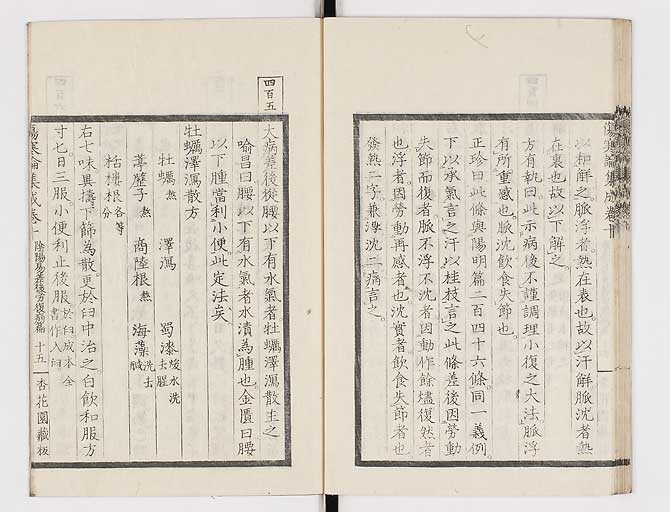 以和解之脈浮者熱在表也故以汗解脈沈者熱
在裏也故以下解之
方有執曰此示病後不謹調理小復之大法脈浮
有所重感也脈沈飲食失節也
正珍曰此條與陽明篇二百四十六條同一義例
下以承氣言之汗以桂枝言之此條差後因勞動
失節而復者脈不浮不沈者因動作餘燼復然者
也浮者因勞動再感者也沈實者飲食失節者也
發熱二字兼浮沈二病言之
四百五
大病差後從腰以下有水氣者牡蠣澤瀉散主之
喻昌曰腰以下有水氣者水漬為腫也金匱曰腰
以下腫當利小便此定法矣
牡蠣澤瀉散方
牡蠣熬 澤瀉 蜀漆煖水洗去腥
葶藶子熬 商陸根熬 海藻洗去鹹
栝樓根各等分
右七味異擣下篩為散更於臼中治之白飲和服方
寸七日三服小便利止後服於臼成本全書作入臼
傷寒論集成卷十 陰陽易差後勞復病篇 十五 杏花園藏板